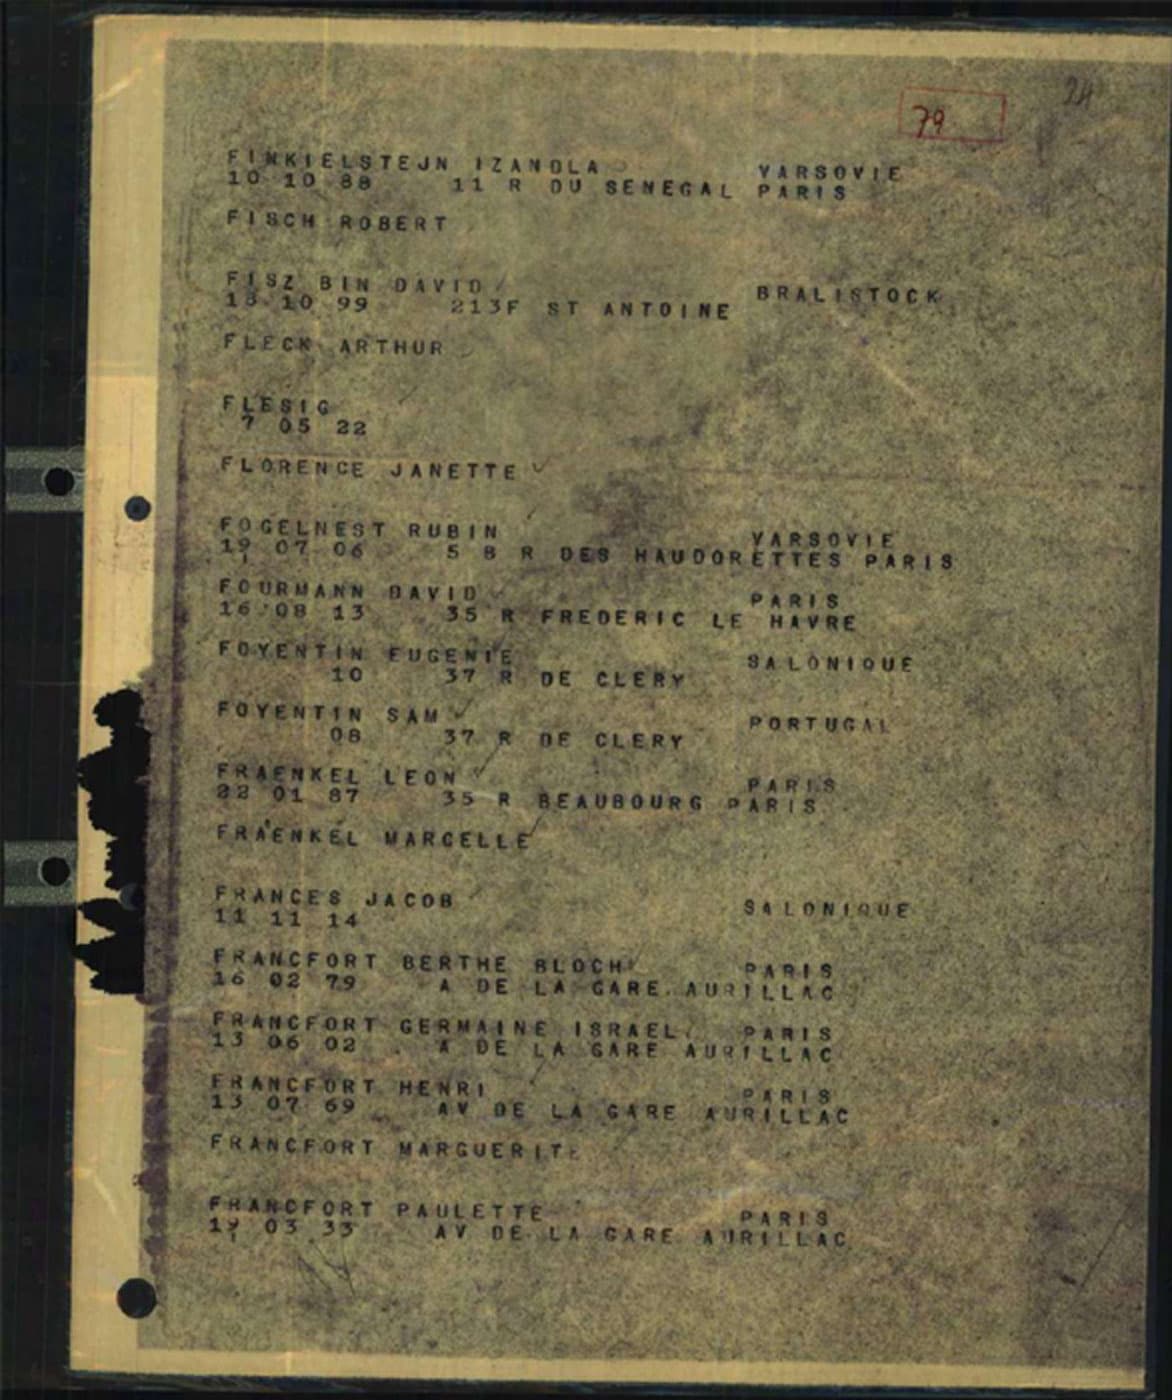 24
79
FINKIELSTEJN IZANOLA VARSOVIE
10 10 88 11 R DU SENEGAL PARIS
FISCH ROBERT
FISZ BIN DAVID BRALISTOCK
18 10 99 213F ST ANTOINE
FLECK ARTHUR
FLESIG
7 05 22
FLORENCE JANETTE
FOGELNEST RUBIN VARSOVIE
19 07 06 5 B R DES HAUDORETTES PARIS
FOURMANN DAVID PARIS
16 08 13 35 R FREDERIC LE HAVRE
FOYENTIN EUGENIE SALONIQUE
10 37 R DE CLERY
FOYENTIN SAM PORTUGAL
08 37 R DE CLERY
FRAENKEL LEON PARIS
22 01 87 35 R BEAUBOURG PARIS
FRAENKEL MARCELLE
FRANCES JACOB SALONIQUE
11 11 14
FRANCFORT BERTHE BLOCH PARIS
16 02 79 A DE LA GARE AURILLAC
FRANCFORT GERMAINE ISRAEL PARIS
13 06 02 A DE LA GARE AURILLAC
FRANCFORT HENRI PARIS
13 07 69 AV DE LA GARE AURILLAC
FRANCFORT MARGUERITE
FRANCFORT PAULETTE PARIS
19 03 33 AV DE LA GARE AURILLAC